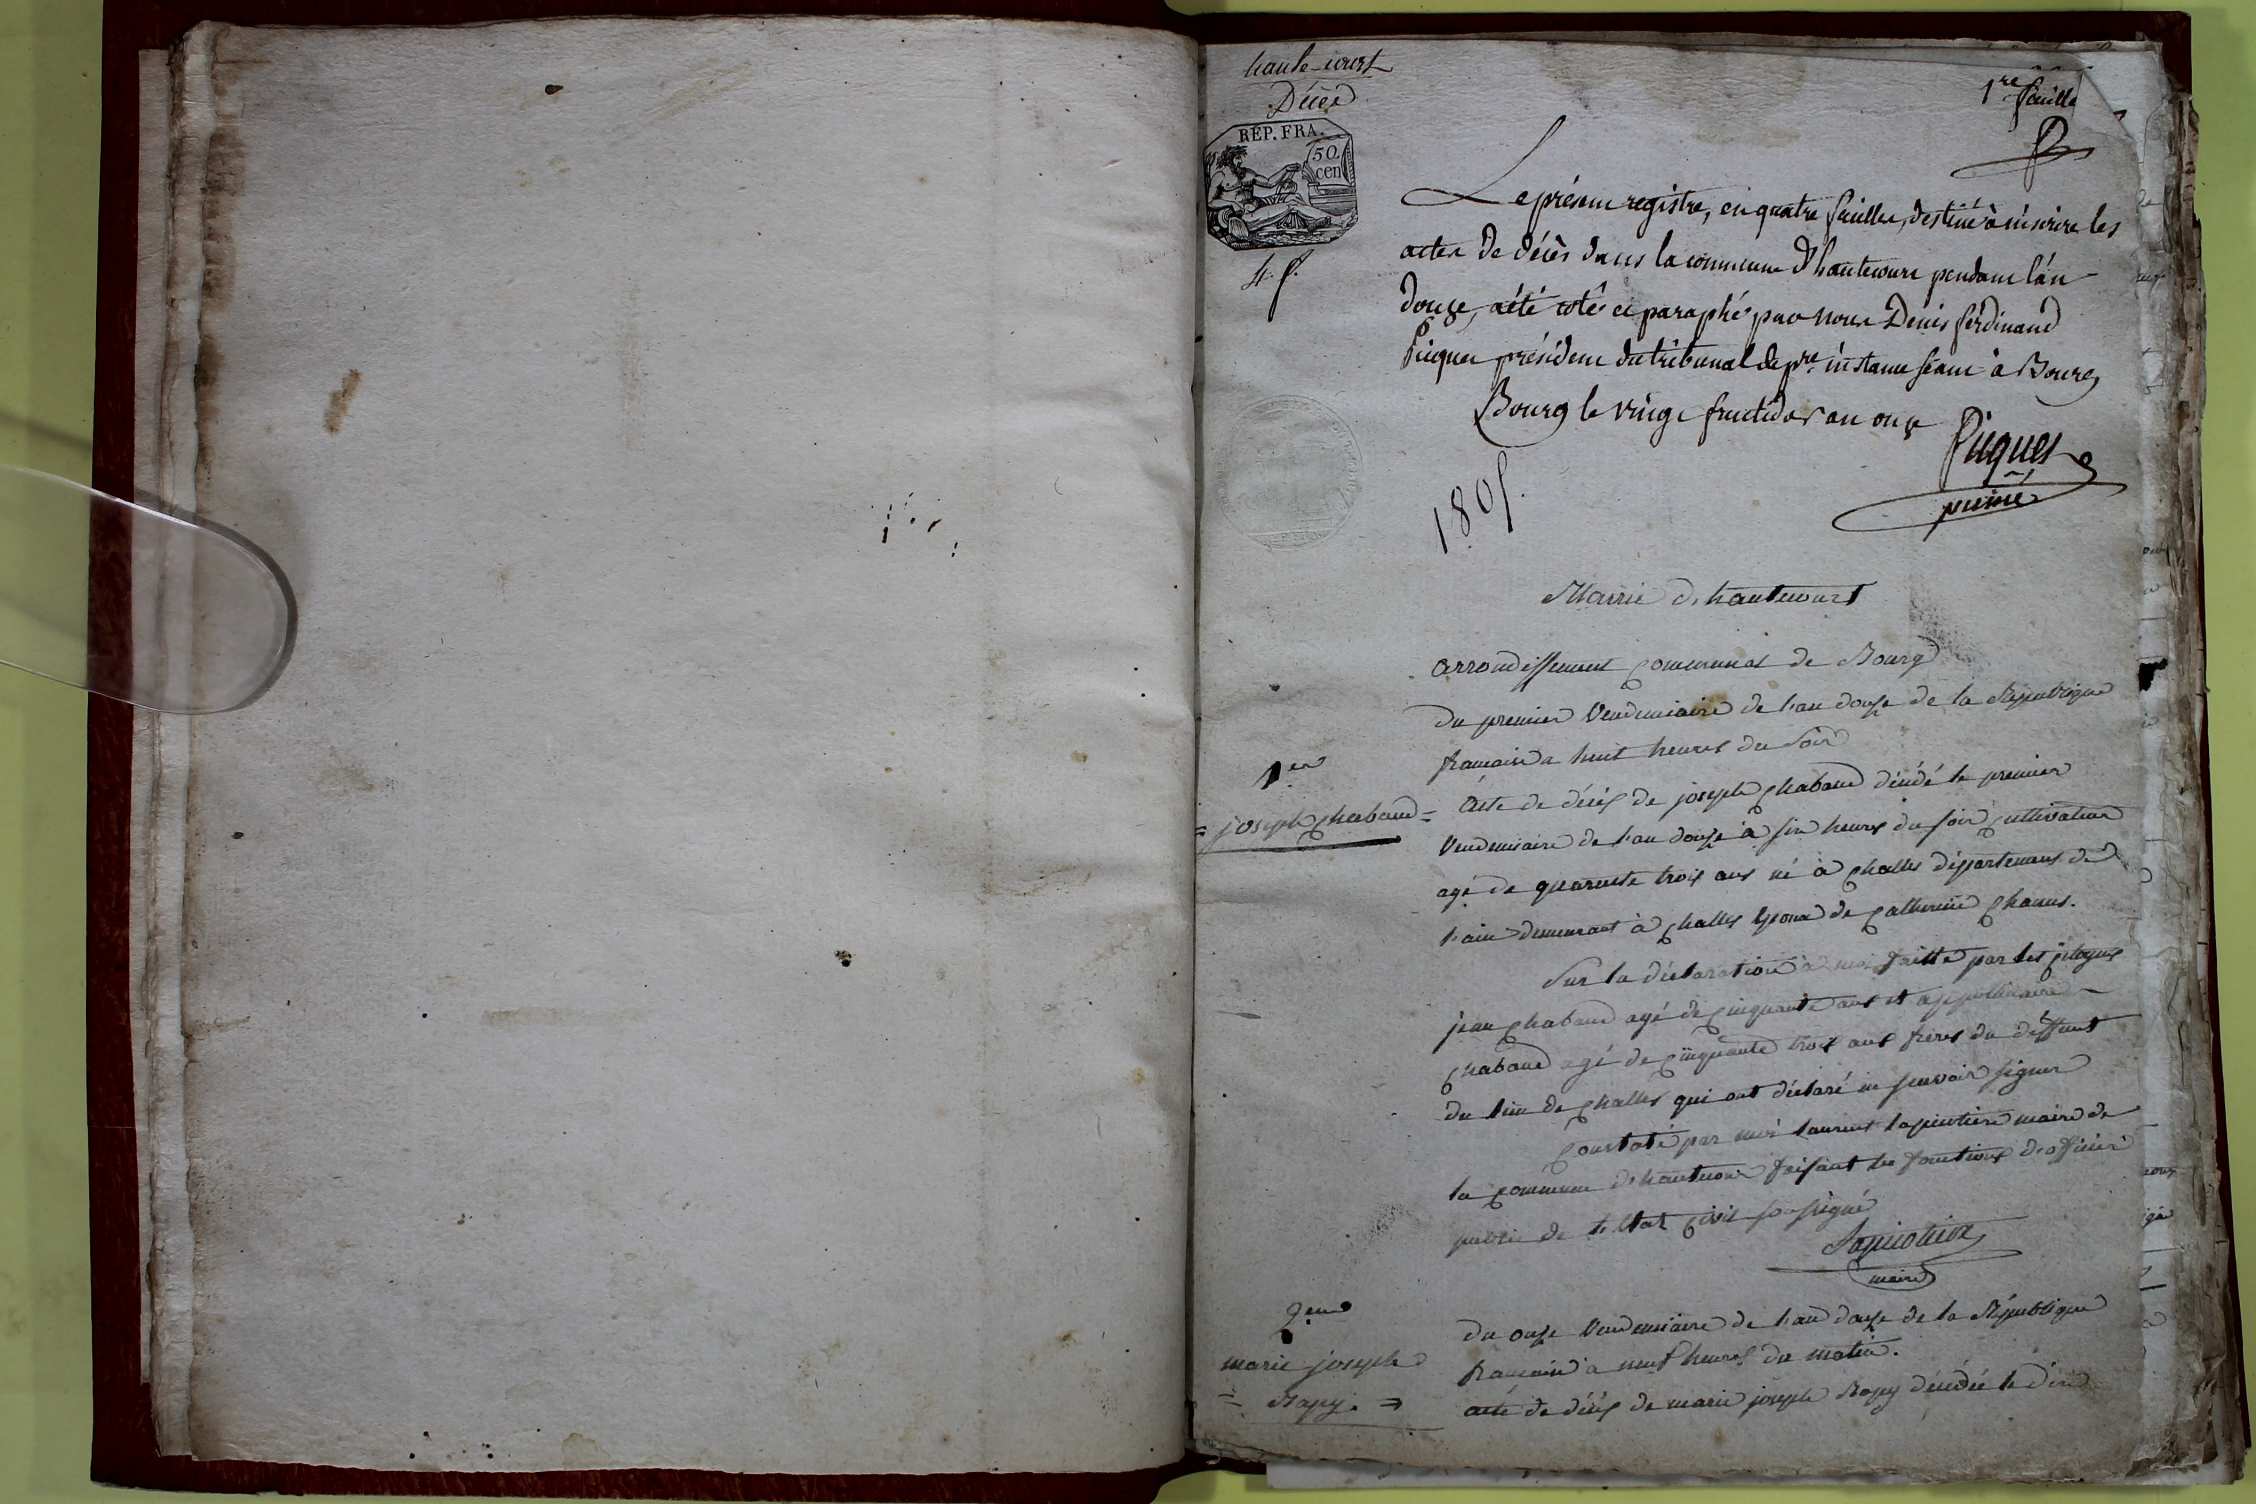 haute-court
Décès
1re feuille
REP. FRA.
50
cen
4 f.
Le présent registre, en quatre feuilles, destiné à inscrire les
actes de décès dans la commune d'hautecourt pendant l'an
douze, a été coté et paraphé par nous Denis ferdinand
Picquet président du tribunal de pre. instance séant à Bourg
Bourg le vingt fructidor an onze
Picquet
1805.
Mairie d'hautecourt
arrondissement Communal de Bourg
du premier Vendemiaire de l'an douze de la République
francaise a huit heures du soir
1er
= joseph Chabaud =
Acte de décès de joseph Chabaud décédé le premier
Vendemiaire de l'an douze à six heures du soir Cultivateur
agé de quarente trois ans né à Challes département de
l'ain demeurant à Challes Epoux de Catherine Chanus.
Sur la déclaration à moi faitte par les Citoyens
jean Chabaud agé de Cinquante ans et appollinaire
Chabaud agé de Cinquante trois ans freres du deffunt
du lieu de Challes qui ont déclaré ne scavoir signer
Constaté par moi laurent lapierre maire de
la Commune d'hautecour faisant les fonctions d'officier
public de l'Etat Civil soussigné
maire
2eme
marie joseph
= Rapy. =
du onze Vendemiaire de l'an douze de la République
francaise à neuf heures du matin.
acte de décès de marie joseph Rapy décédée le dix